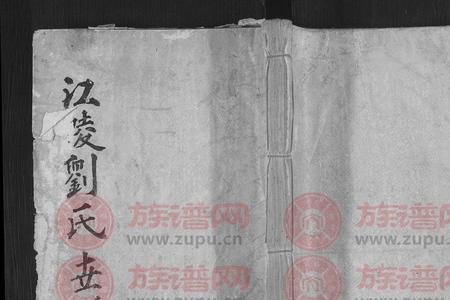 江陵劉氏世
族谱网 族谱网
www.zupu.cn www.zupu.cn
族谱网 族谱网